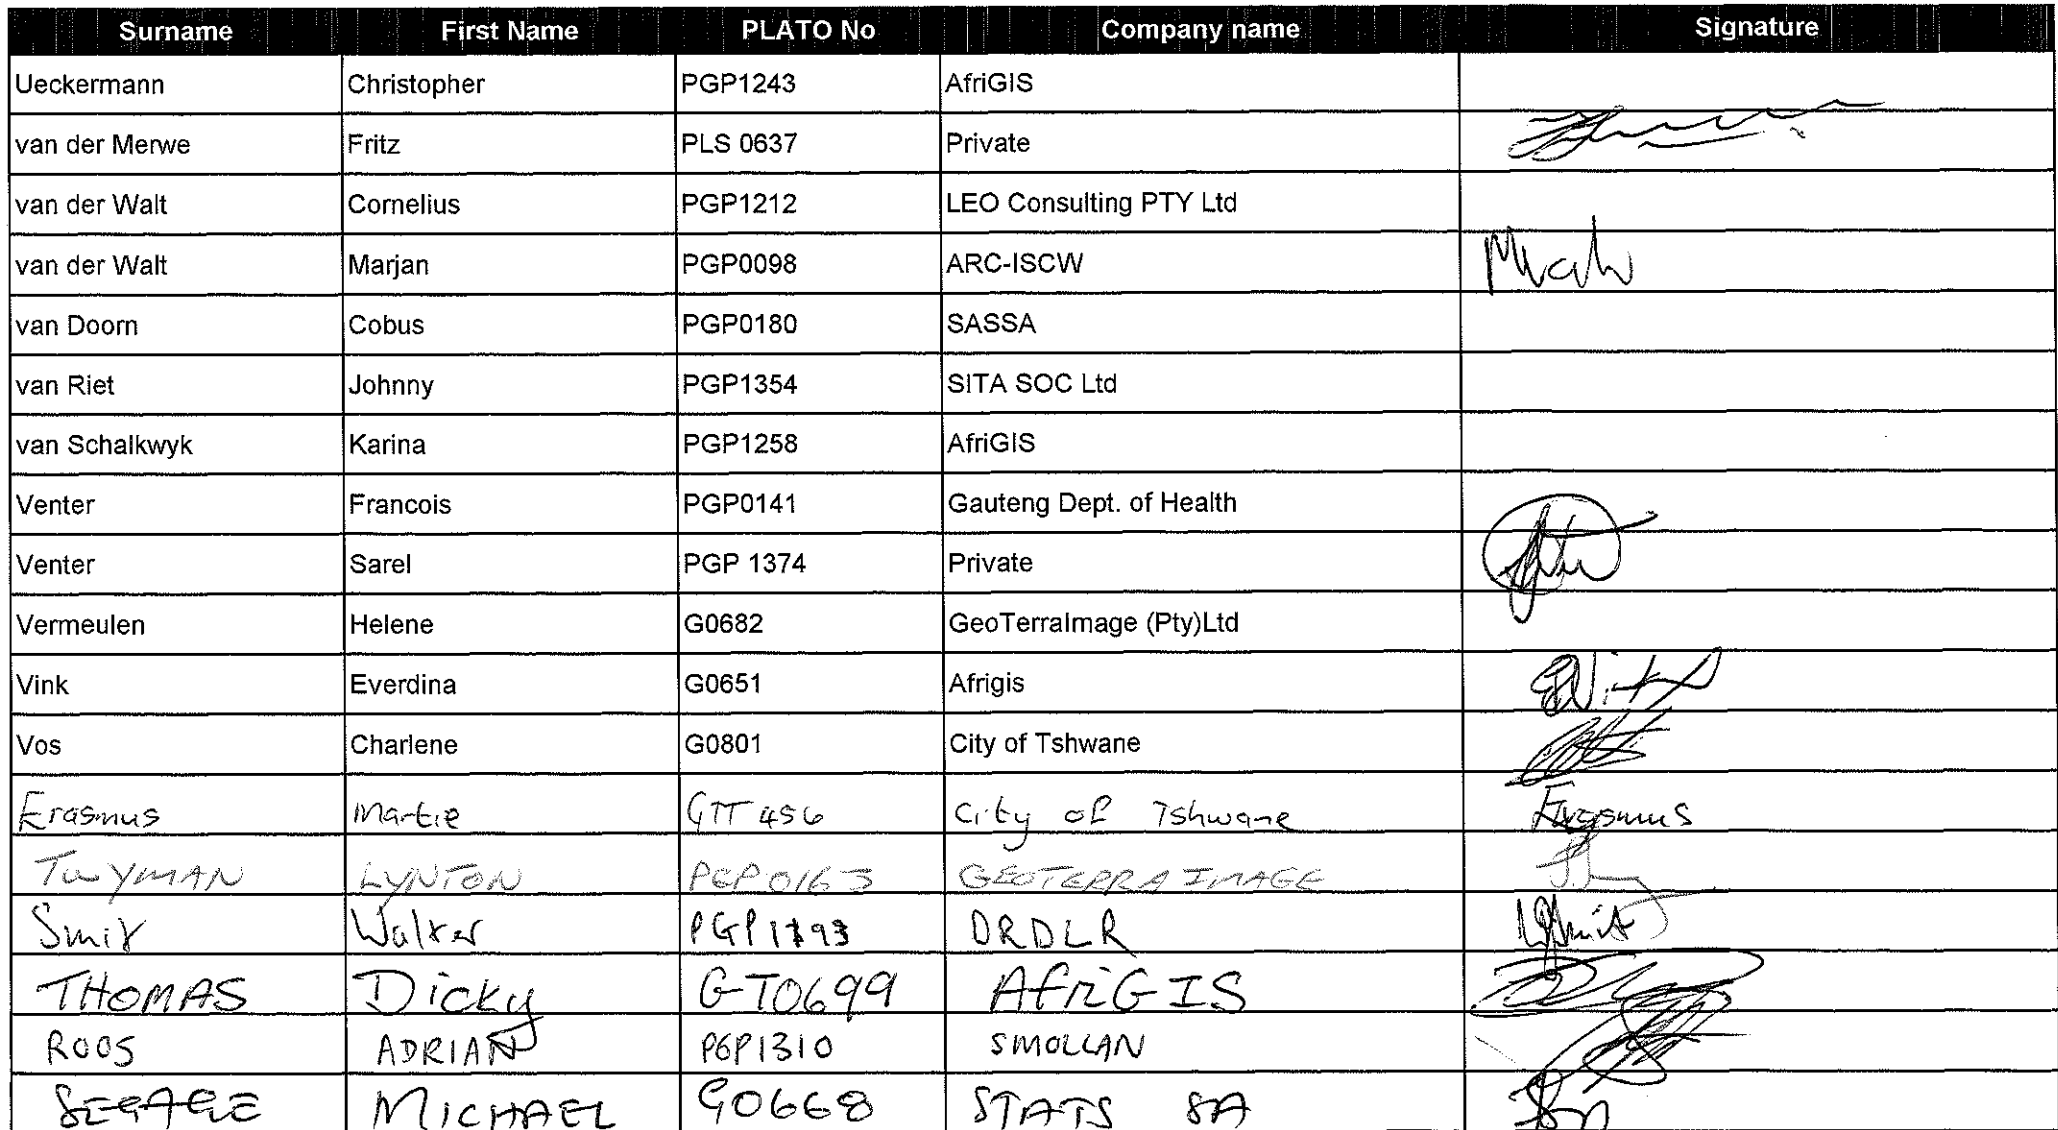 Surname First Name PLATO No Company name Signature
Ueckermann Christopher PGP1243 AfriGIS
van der Merwe Fritz PLS 0637 Private
van der Walt Cornelius PGP1212 LEO Consulting PTY Ltd
van der Walt Marjan PGP0098 ARC-ISCW
van Doorn Cobus PGP0180 SASSA
van Riet Johnny PGP1354 SITA SOC Ltd
van Schalkwyk Karina PGP1258 AfriGIS
Venter Francois PGP0141 Gauteng Dept. of Health
Venter Sarel PGP 1374 Private
Vermeulen Helene G0682 GeoTerraImage (Pty)Ltd
Vink Everdina G0651 Afrigis
Vos Charlene G0801 City of Tshwane
Erasmus Martie GTT 456 City of Tshwane Erasmus
TWYMAN LYNTON PGP0163 GEOTERRAIMAGE
Smit Walter DRDLR
THOMAS Dicky GT0699 AfriGIS
ROOS ADRIAN PGP1310 SMOLLAN
SEGAGE MICHAEL G0668 STATS SA